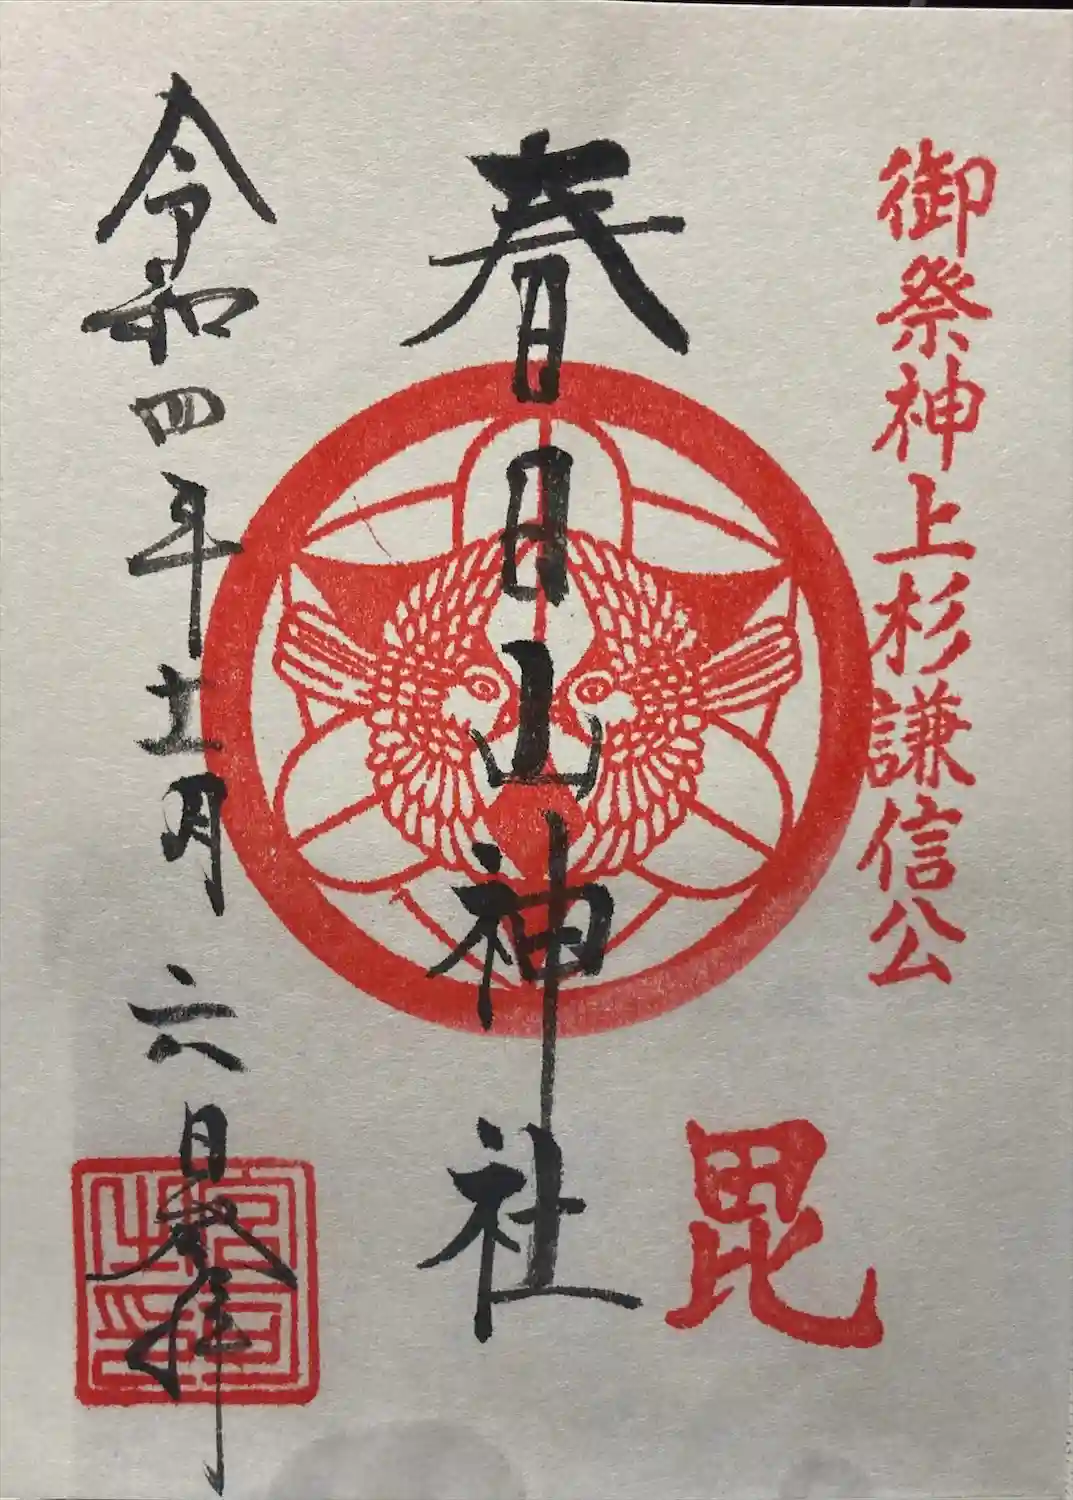 御祭神上杉謙信公
毘
春日山神社
令和四年十一月六日奉拝